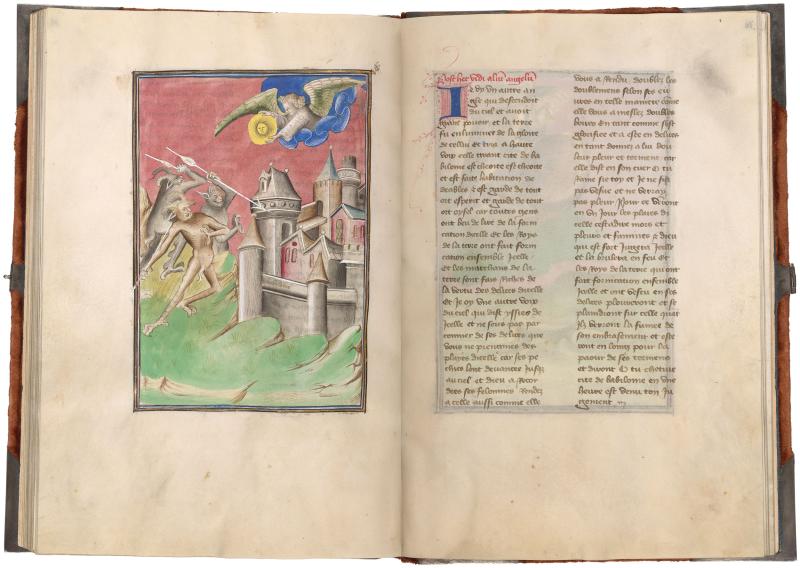 Post hec vidi aliu angelu
Ie vy vn autre an
gle qui descendoit
du ciel et auoit
grant pouoir et la terre
fu enluminee de la gloire
de cellui et cria a haulte
voix celle grant cite de ba
bilonne est cheoite est cheoite
et est faite habitation de
deables et est garde de tout
ort esperit et garde de tout
ort oysel car toutes gens
ont beu de lire de la form
cation dicelle et les Roys
de la terre ont fait form
cation ensemble Icelle
Et les marchans de la
terre sont fais Riches de
la vertu des delices dicelle
Et Je oy vne autre voix
du ciel qui dist yssies de
Icelle et ne soies pas par
connier de ses delices que
vous ne preniemes des
playes dicelle car ses pe
chies sont deuances Jusqz
au ciel et dieu a Recor
dees ses felonnies Rendez
a celle aussi comme elle
vous a Rendu doubles les
doublemens selon ses eu
ures en telle maniere come
elle vous a meslez doubles
beures En tant comme sest
glorifiee et a este en delices
en tant donnez a lui dou
leur pleur et torment car
elle dist en son cuer O tu
Raine sie toy et Je ne sui
pas vesue et ne verray
pas pleur Pour ce vendront
en vn Jour les plaies di
celle cestadire mors et
pleurs et famines et dieu
qui est fort Jungera Icelle
et la brulera en feu Et
les Roys de la terre qui ont
fait formation ensemble
Icelle et ont vescu en ses
delices ploureront et se
plaindront sur celle quat
Ilz verront la fumee de
son embrasement et este
vont en loing pour la
paour de ses tormens
et diront O tu chetiue
cite de babilonne en vne
heure est venu ton Ju
gement